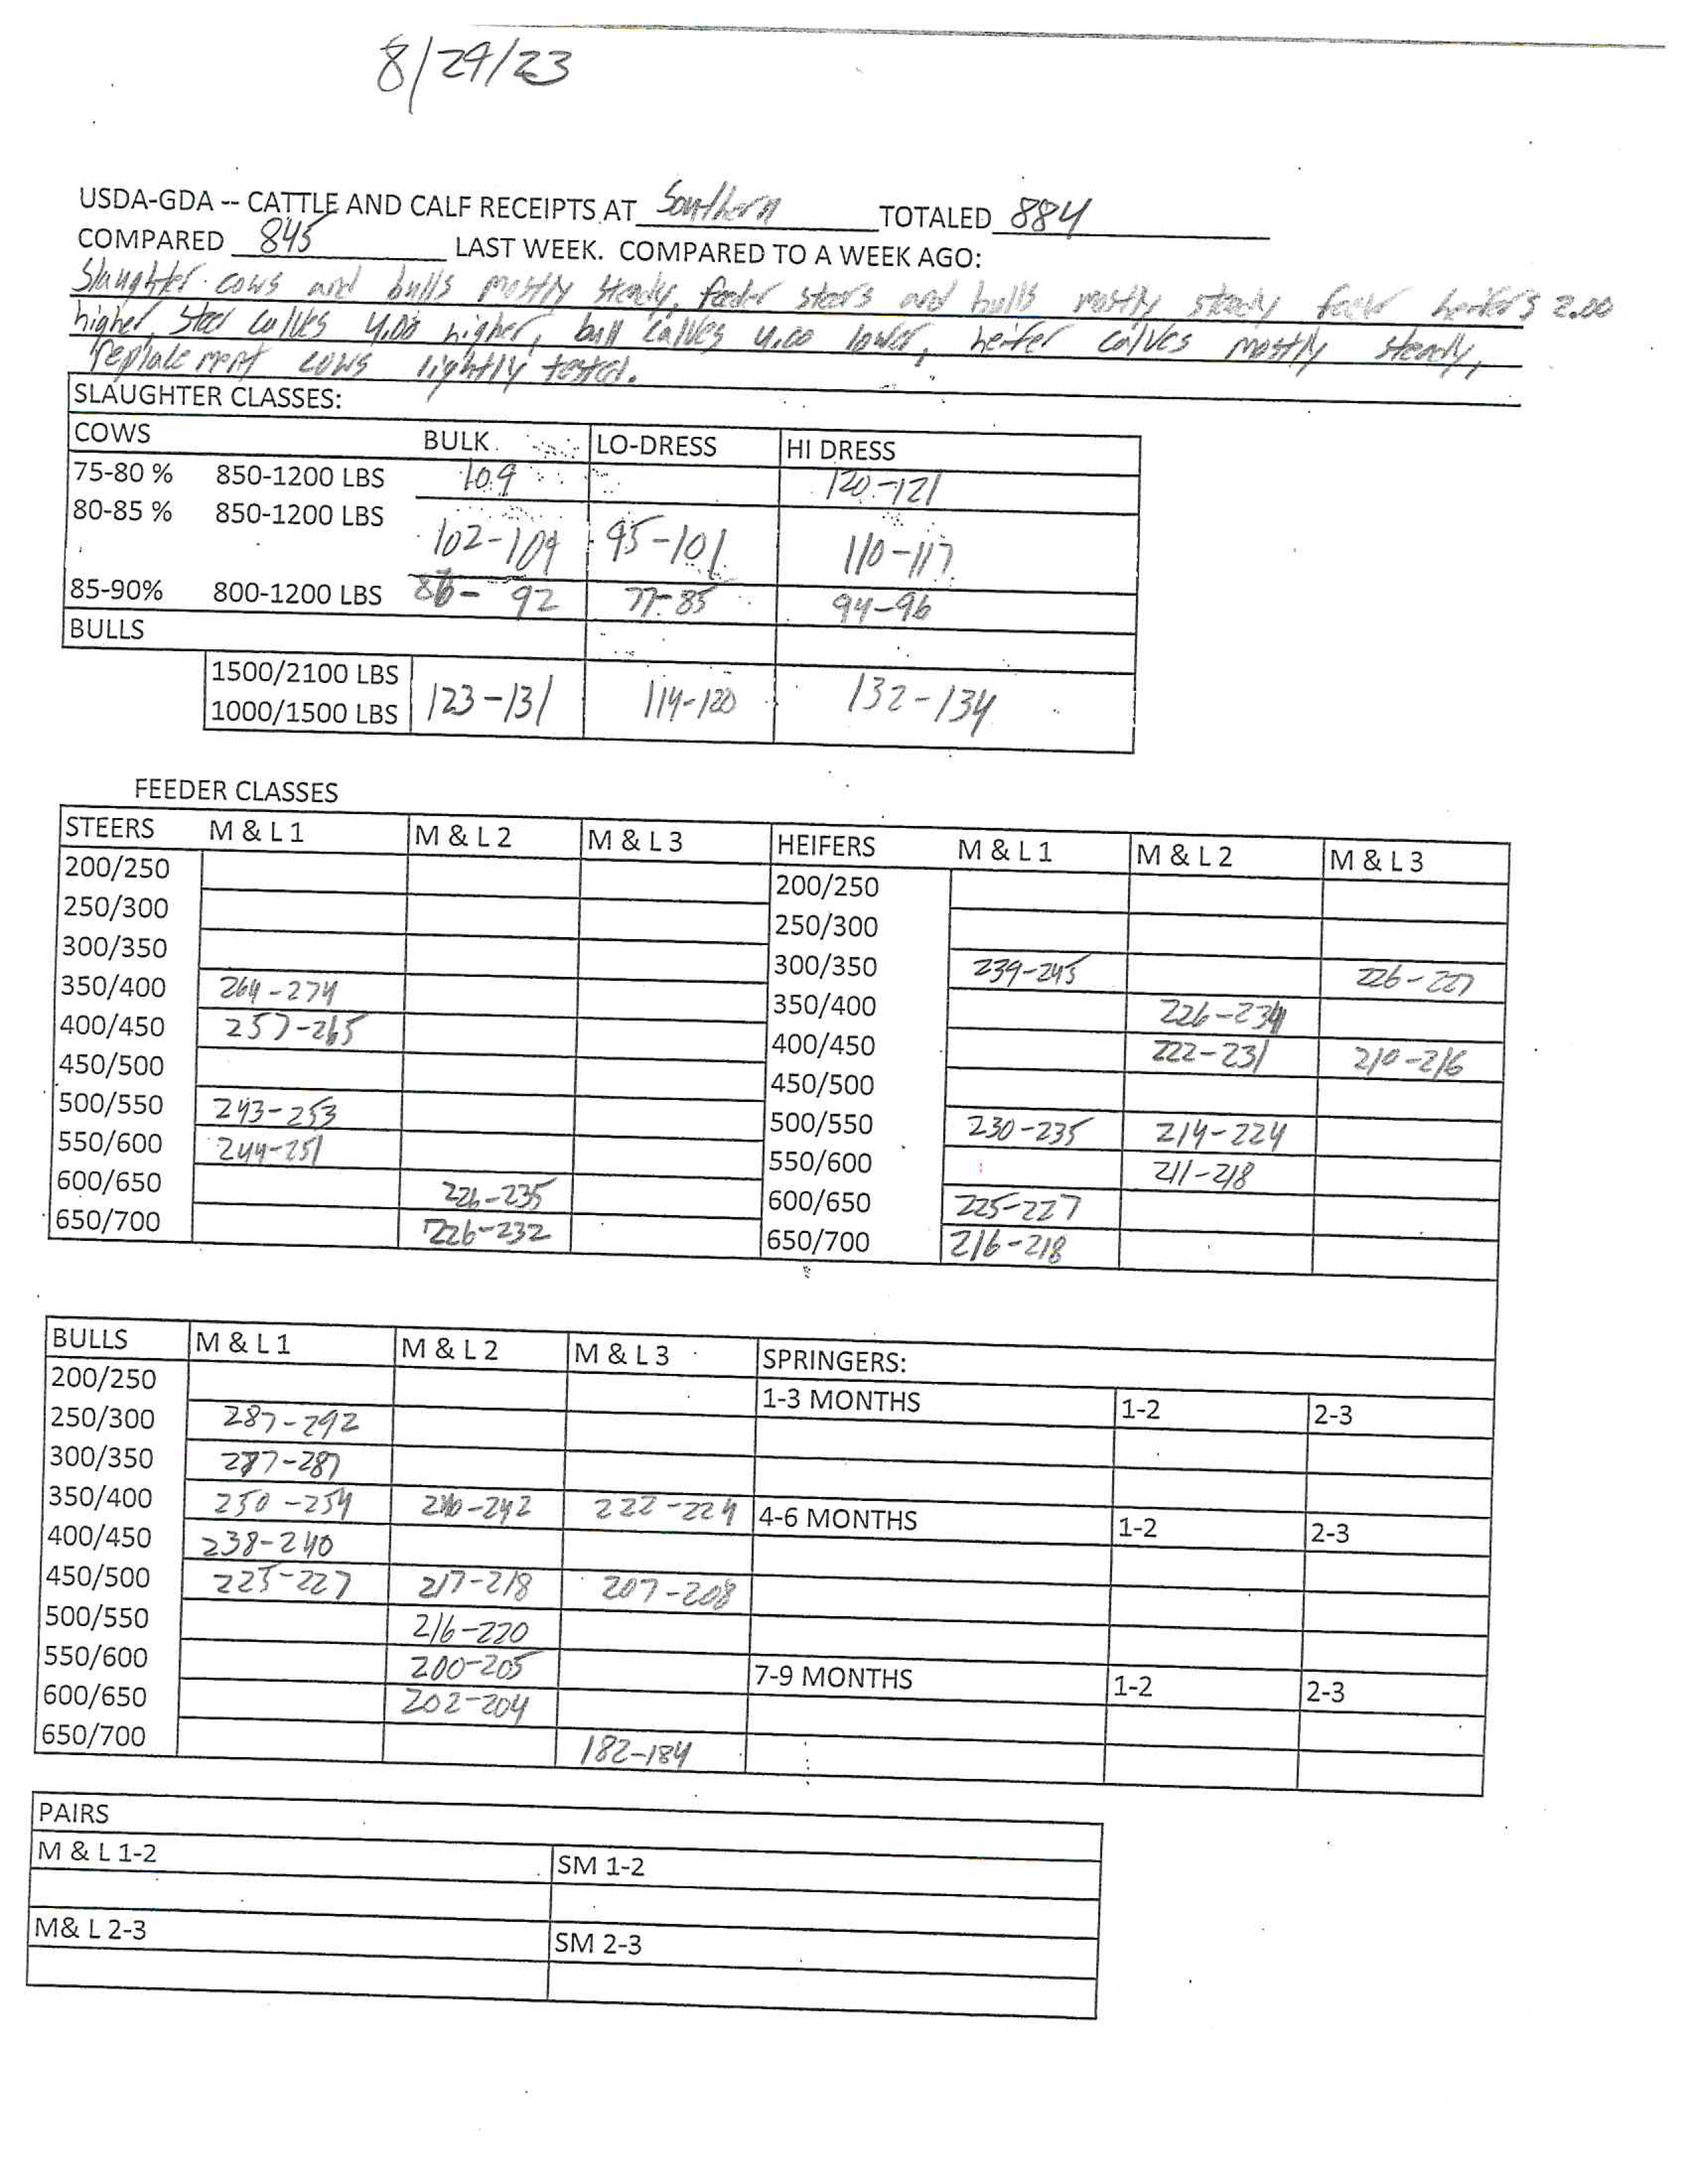 8/29/23
USDA-GDA -- CATTLE AND CALF RECEIPTS AT Southern TOTALED 884
COMPARED 845 LAST WEEK. COMPARED TO A WEEK AGO:
Slaughter cows and bulls mostly steady, feeder steers and bulls mostly steady feeder heifers 2.00
higher, steer calves 4.00 higher, bull calves 4.00 lower, heifer calves mostly steady,
replacement cows lightly tested.
SLAUGHTER CLASSES:
COWS BULK LO-DRESS HI DRESS
75-80 % 850-1200 LBS 109 120-121
80-85 % 850-1200 LBS 102-109 95-101 110-117
85-90% 800-1200 LBS 86-92 77-85 94-96
BULLS
1500/2100 LBS
1000/1500 LBS 123-131 114-120 132-134
FEEDER CLASSES
STEERS M & L 1 M & L 2 M & L 3 HEIFERS M & L 1 M & L 2 M & L 3
200/250 200/250
250/300 250/300
300/350 300/350 239-245 226-227
350/400 264-274 350/400 226-234
400/450 257-265 400/450 222-231 210-216
450/500 450/500
500/550 243-253 500/550 230-235 214-224
550/600 244-251 550/600 211-218
600/650 226-235 600/650 225-227
650/700 226-232 650/700 216-218
BULLS M & L 1 M & L 2 M & L 3 SPRINGERS:
200/250 1-3 MONTHS 1-2 2-3
250/300 287-292
300/350 277-287
350/400 250-254 -242 222-224 4-6 MONTHS 1-2 2-3
400/450 238-240
450/500 225-227 217-218 207-208
500/550 216-220
550/600 200-205 7-9 MONTHS 1-2 2-3
600/650 202-204
650/700 182-184
PAIRS
M & L 1-2 SM 1-2
M& L 2-3 SM 2-3